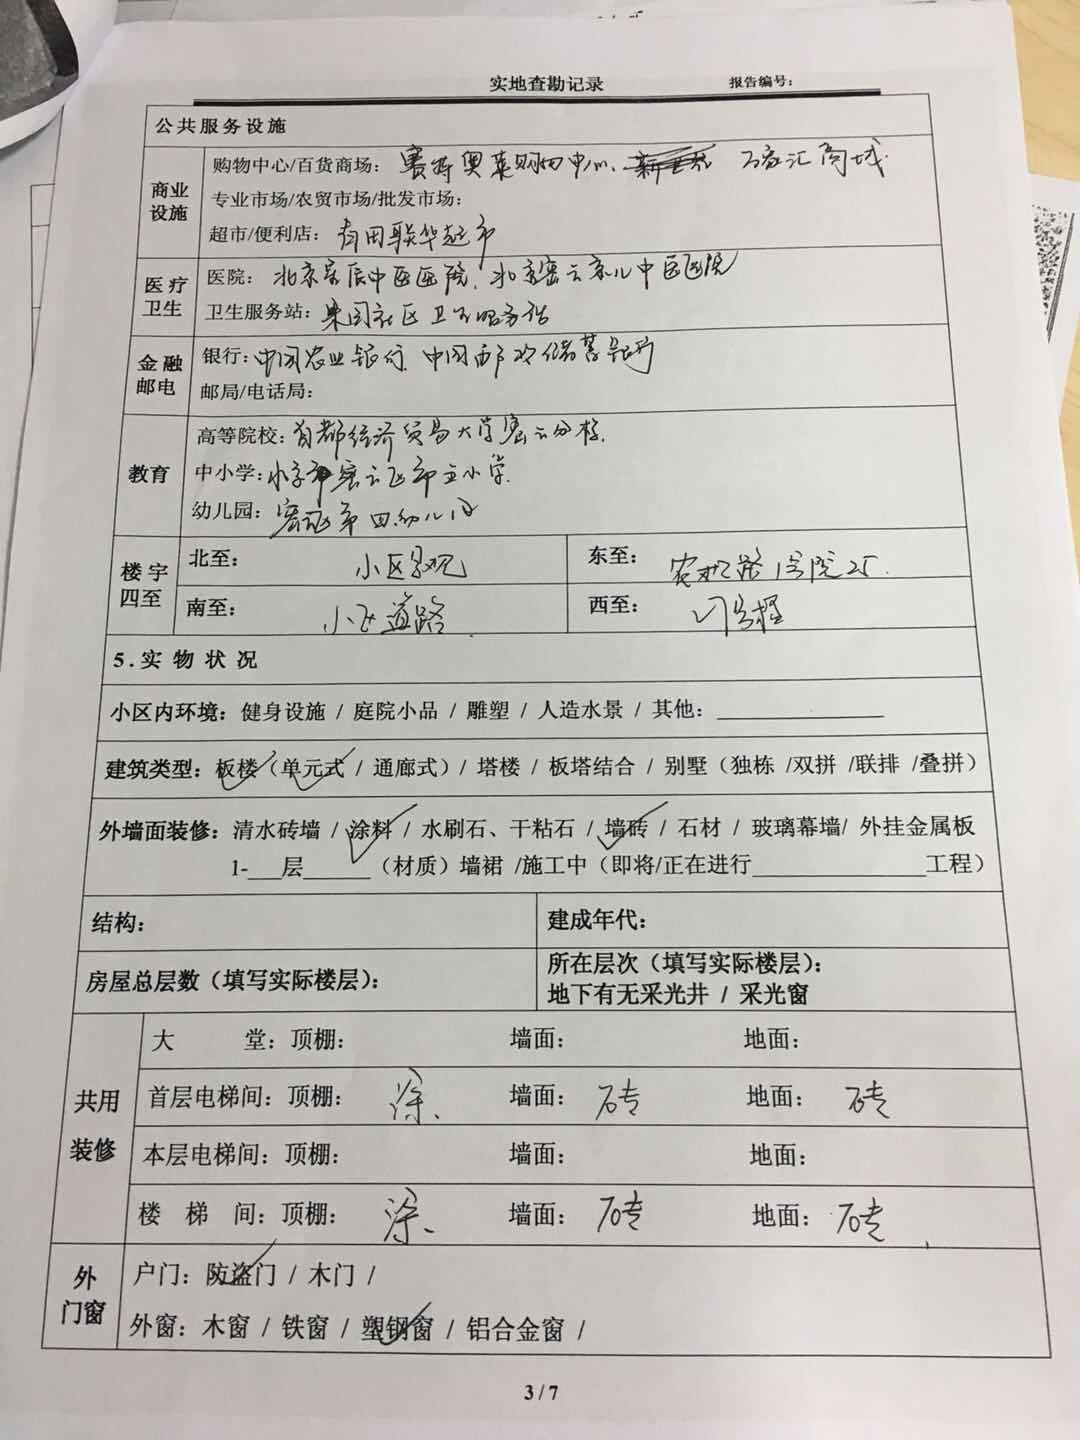 实地查勘记录 报告编号：
公共服务设施
商业设施
购物中心/百货商场： 奥莱购物中心、 万家汇商城
专业市场/农贸市场/批发市场：
超市/便利店： 联华超市
医疗卫生
医院： 北京宸中医医院、北京密云京儿中医医院
卫生服务站： 果园社区卫生服务站
金融邮电
银行：中国农业银行 中国邮政储蓄银行
邮局/电话局：
教育
高等院校：首都经济贸易大学密云分校
中小学： 密云区 小学
幼儿园： 幼儿园
楼宇四至
北至： 小区景观 东至： 农机路
南至： 小区道路 西至： 号楼
5．实物状况
小区内环境：健身设施 / 庭院小品 / 雕塑 / 人造水景 / 其他：
建筑类型：板楼（单元式 / 通廊式）/ 塔楼 / 板塔结合 / 别墅（独栋 /双拼 /联排 /叠拼）
外墙面装修：清水砖墙 / 涂料 / 水刷石、干粘石 / 墙砖 / 石材 / 玻璃幕墙/ 外挂金属板
1-___层______（材质）墙裙 /施工中（即将/正在进行________________工程）
结构： 建成年代：
房屋总层数（填写实际楼层）： 所在层次（填写实际楼层）：
地下有无采光井 / 采光窗
共用装修
大 堂：顶棚： 墙面： 地面：
首层电梯间：顶棚： 涂、 墙面： 砖 地面： 砖
本层电梯间：顶棚： 墙面： 地面：
楼 梯 间：顶棚： 涂、 墙面： 砖 地面： 砖
外门窗
户门：防盗门 / 木门 /
外窗：木窗 / 铁窗 / 塑钢窗 / 铝合金窗 /
3 / 7